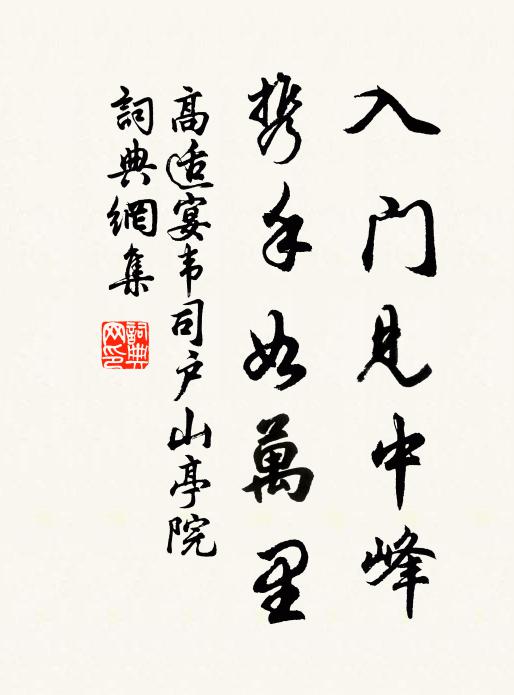 入门見中峰
携手如萬里
高适宴韦司户山亭院
詞典網集
詞典网印